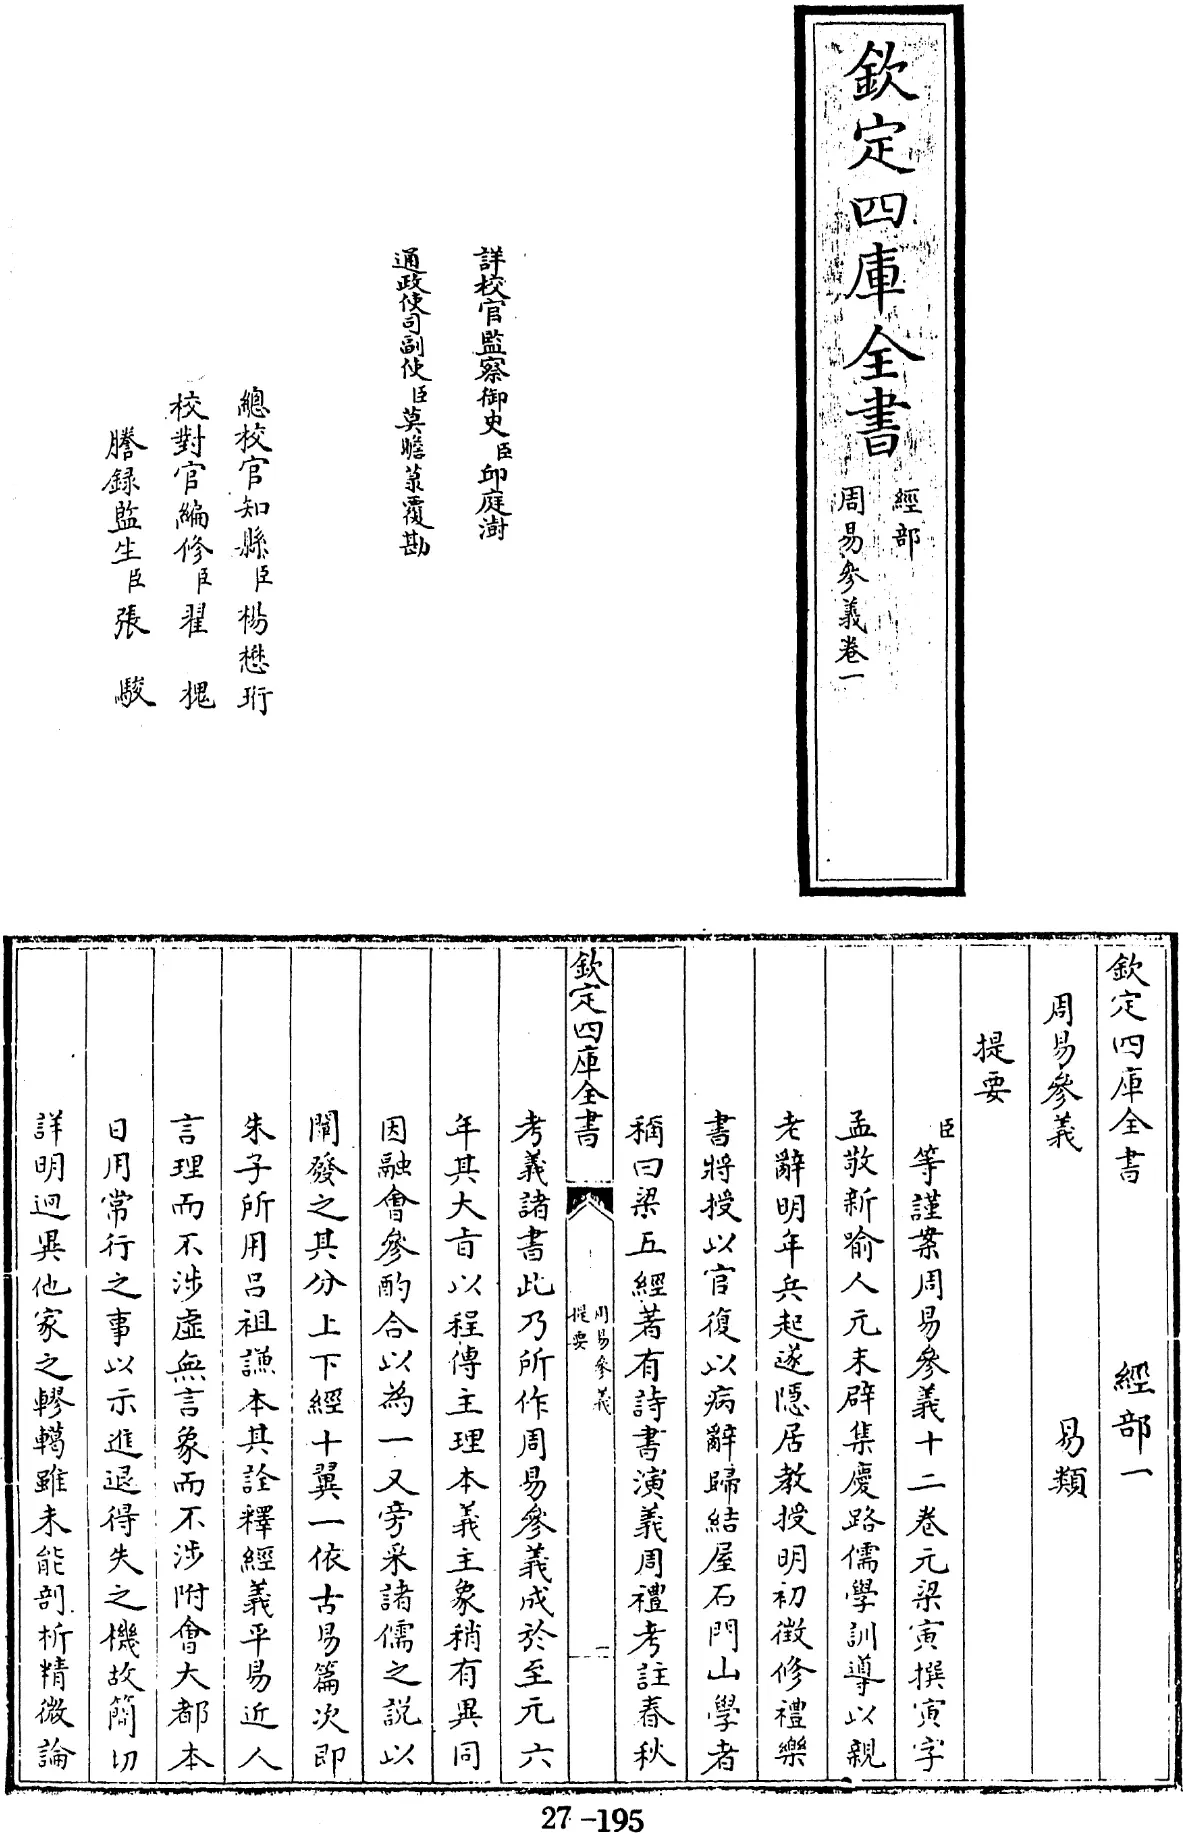 欽定四庫全書
經部
周易參義卷一
詳校官監察御史臣邱庭澍
通政使司副使臣莫瞻菉覆勘
總校官知縣臣楊懋珩
校對官編修臣翟槐
謄録監生臣張駿
欽定四庫全書 經部一
周易參義 易類
提要
臣等謹案周易參義十二卷元梁寅撰寅字
孟敬新喻人元末辟集慶路儒學訓導以親
老辭明年兵起遂隠居教授明初徴修禮樂
書將授以官復以病辭歸結屋石門山學者
稱曰梁五經著有詩書演義周禮考註春秋
欽定四庫全書
周易參義
提要
一
考義諸書此乃所作周易參義成於至元六
年其大旨以程傳主理本義主象稍有異同
因融會參酌合以為一又旁采諸儒之説以
闡發之其分上下經十翼一依古易篇次即
朱子所用呂祖謙本其詮釋經義平易近人
言理而不涉虛無言象而不涉附會大都本
日用常行之事以示進退得失之機故簡切
詳明迥異他家之轇轕雖未能剖析精微論
27-195